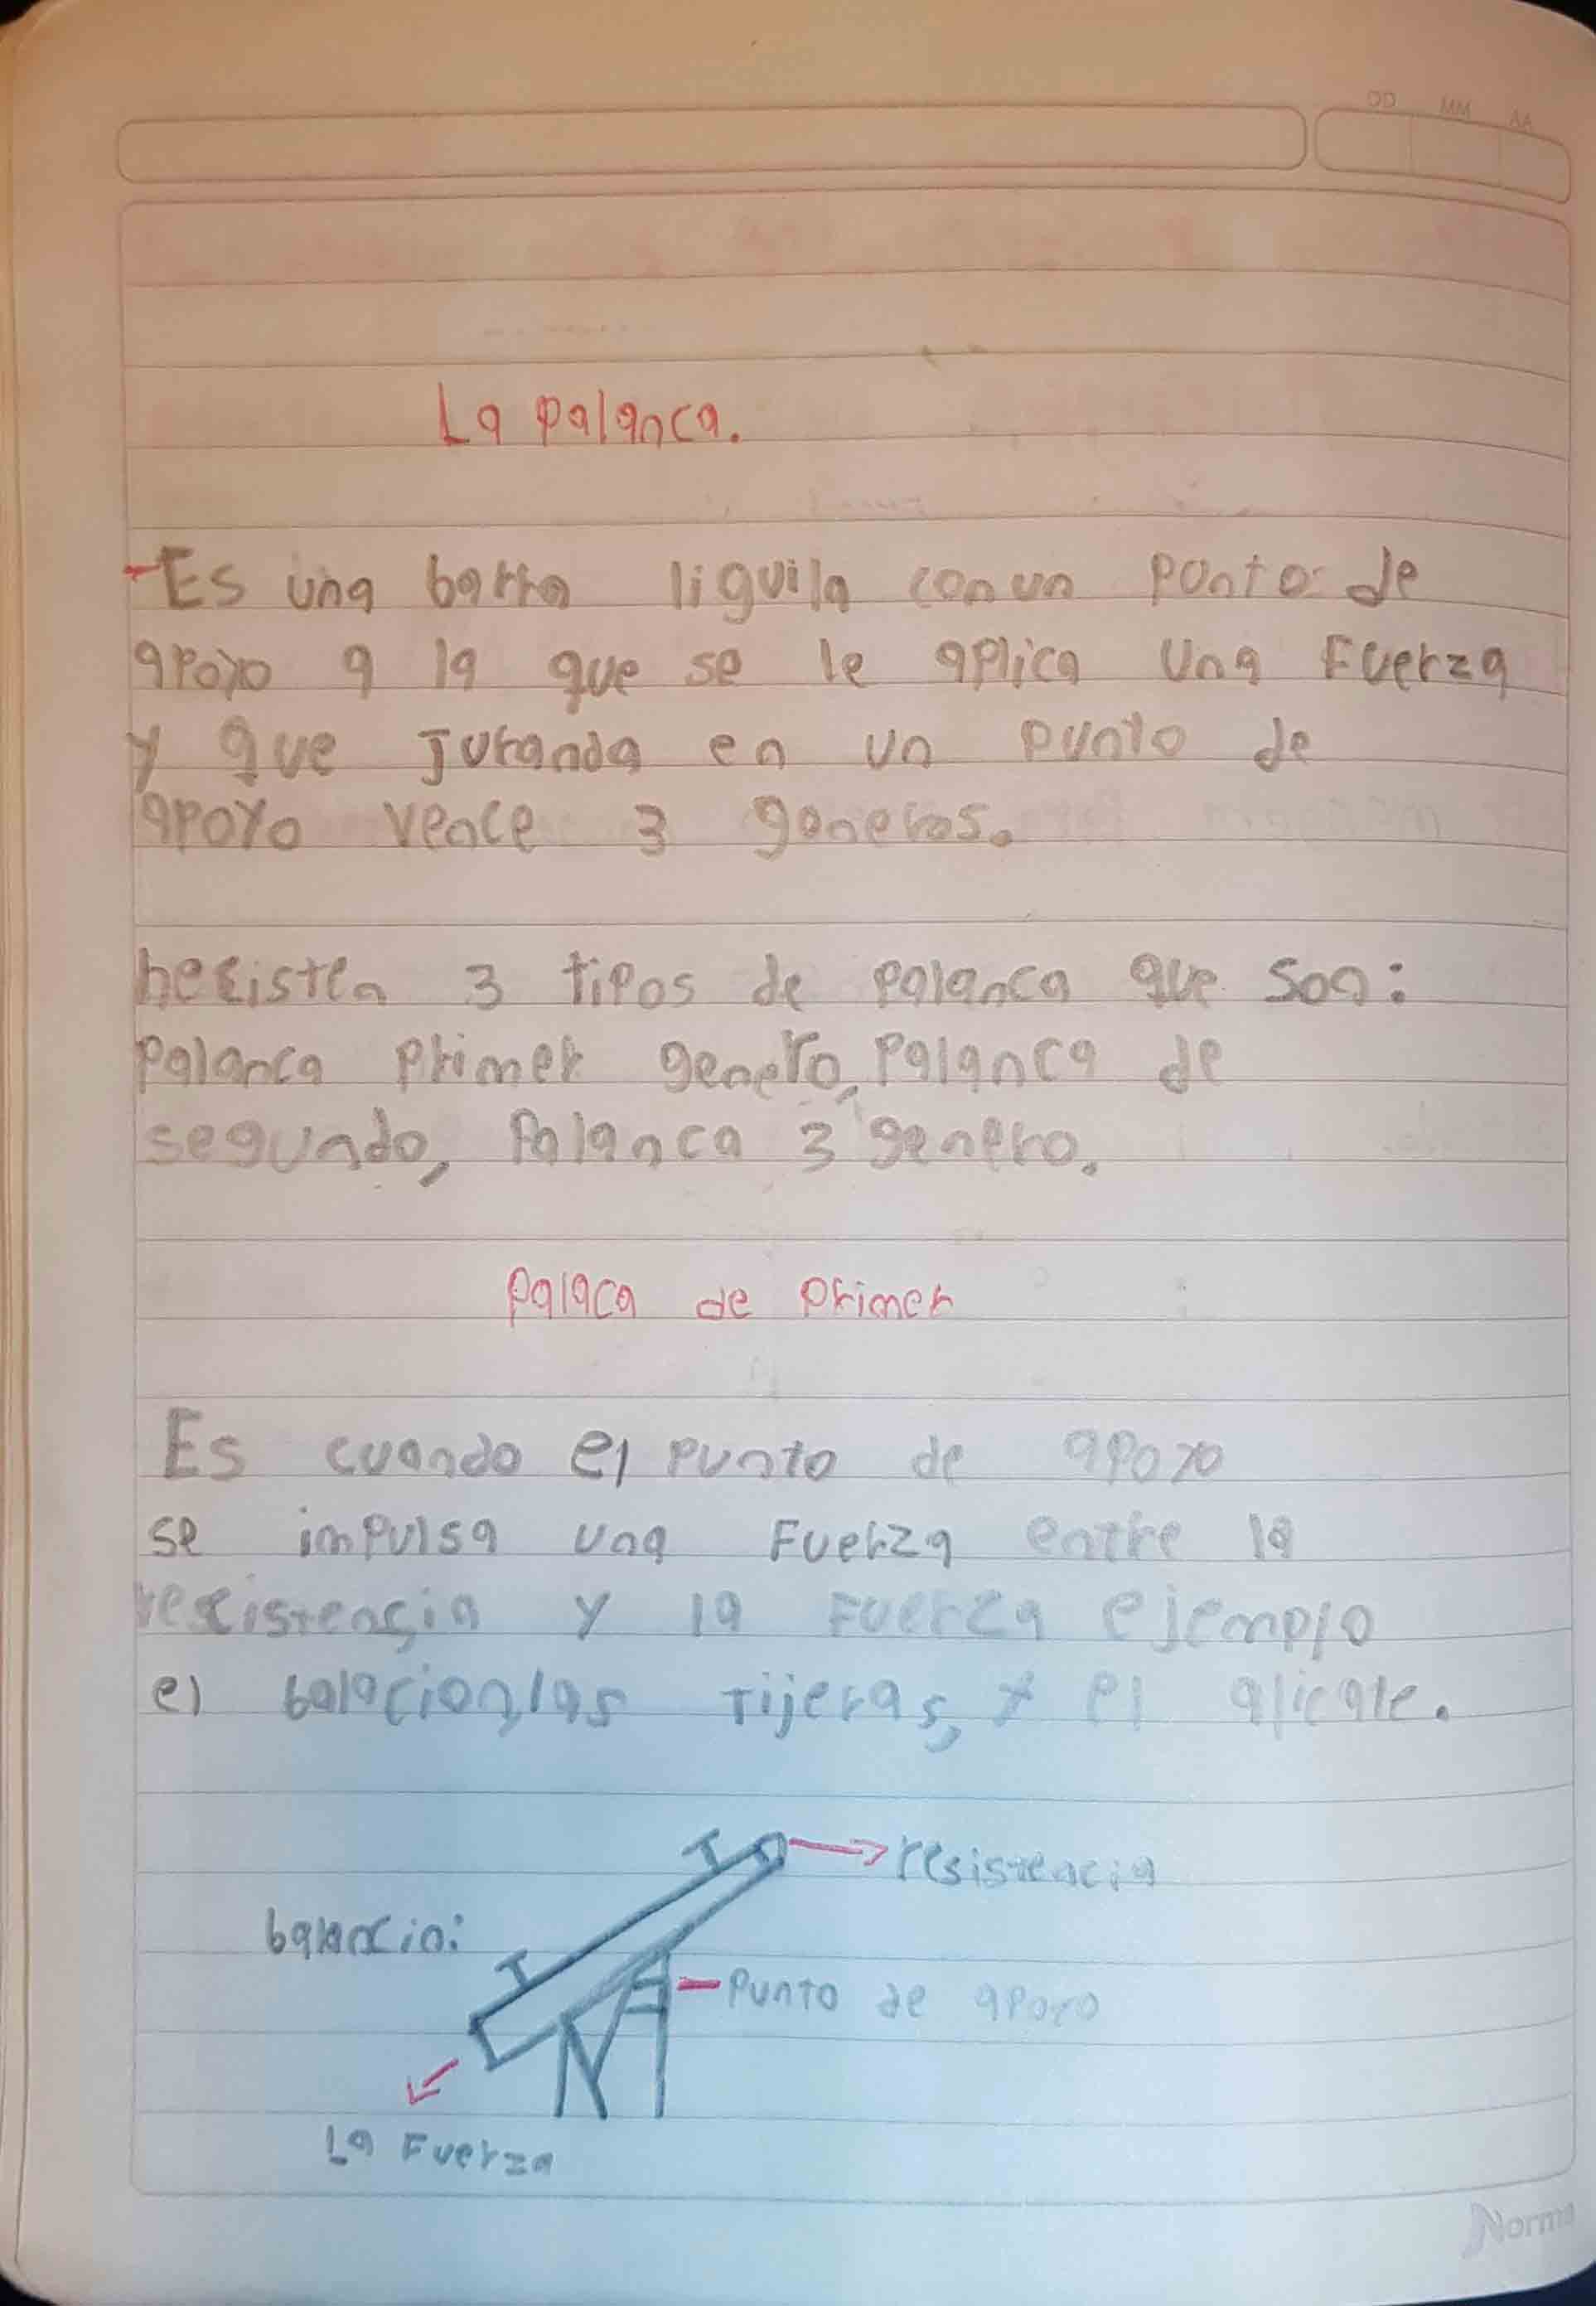 DD MM AA
La palanca.
-Es una barra liguila con un ponto de
apoyo a la que se le aplica una Fuerza
y que juranda en un punto de
apoyo vence 3 goneros.
hexisten 3 tipos de palanca que son:
palanca primer genero, palanca de
segundo, Palanca 3 genero.
palaca de primer
Es cuando el punto de apoyo
se impulsa una Fuerza entre la
rexistencia y la Fuerza ejemplo
el balacion, las Tijeras, y el alicate.
resistencia
balancio:
Punto de apoyo
La Fuerza
Norma